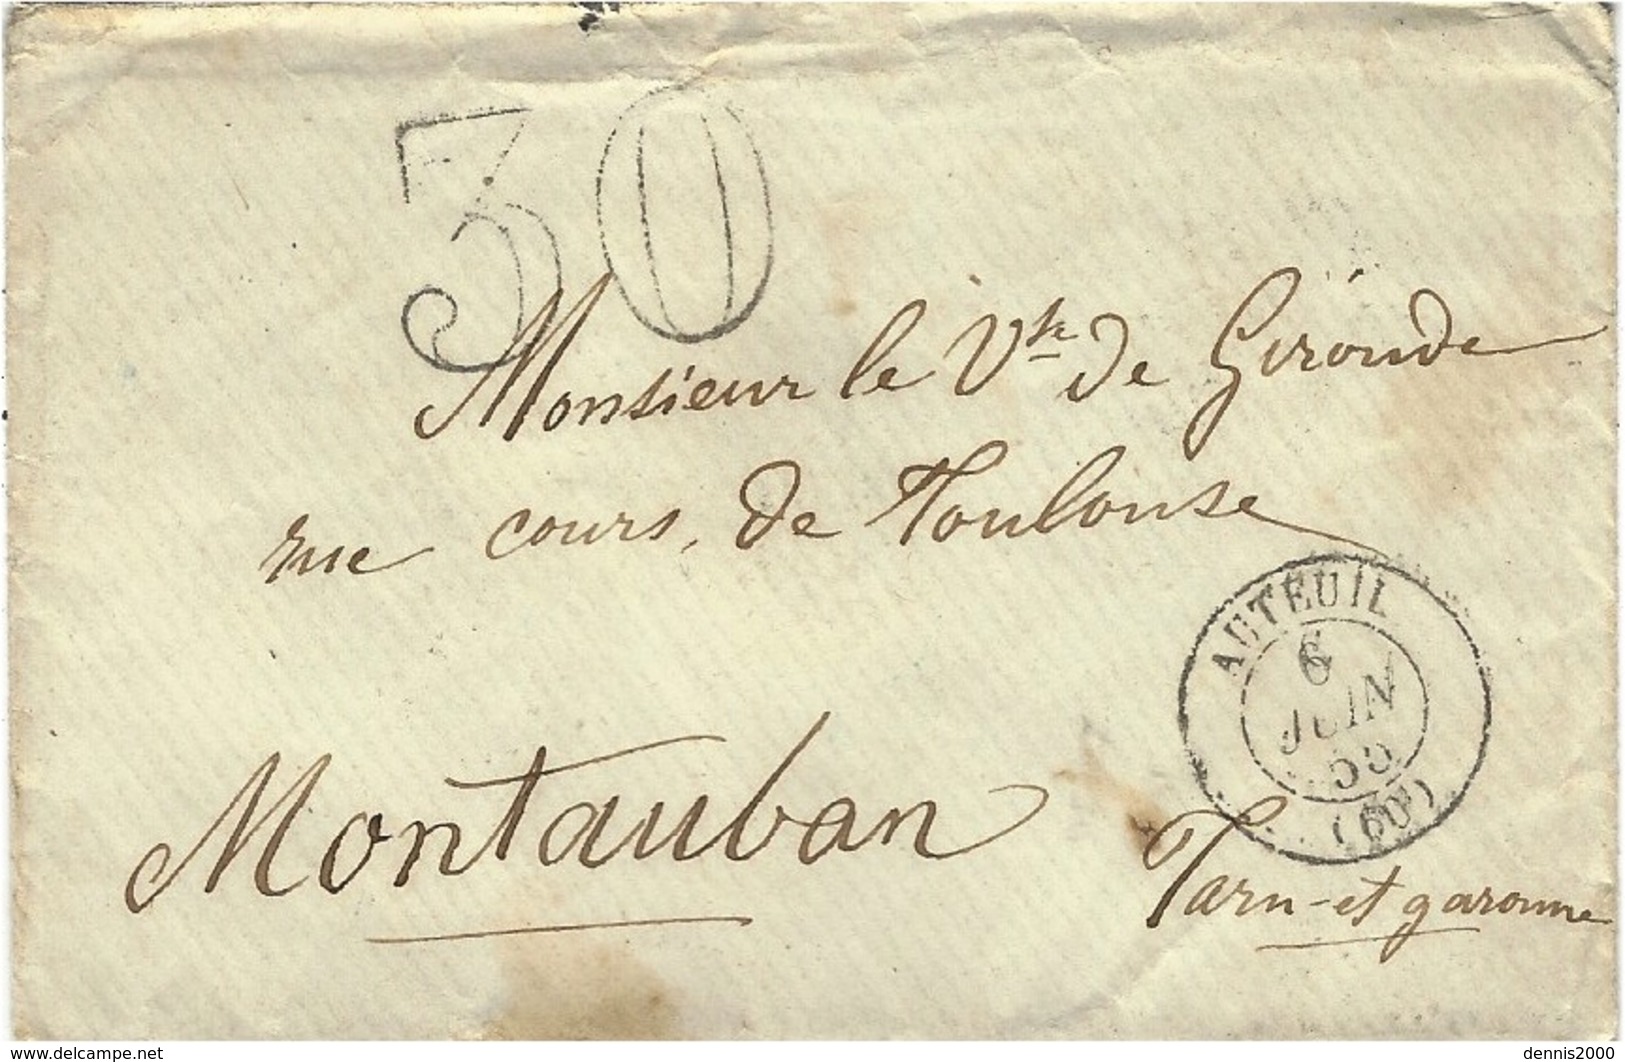 30
Monsieur le Vte de Gironde
rue cours, de Toulouse
AUTEUIL
6
JUIN
55
(60)
Montauban
Tarn-et garonne
www.delcampe.net
dennis2000